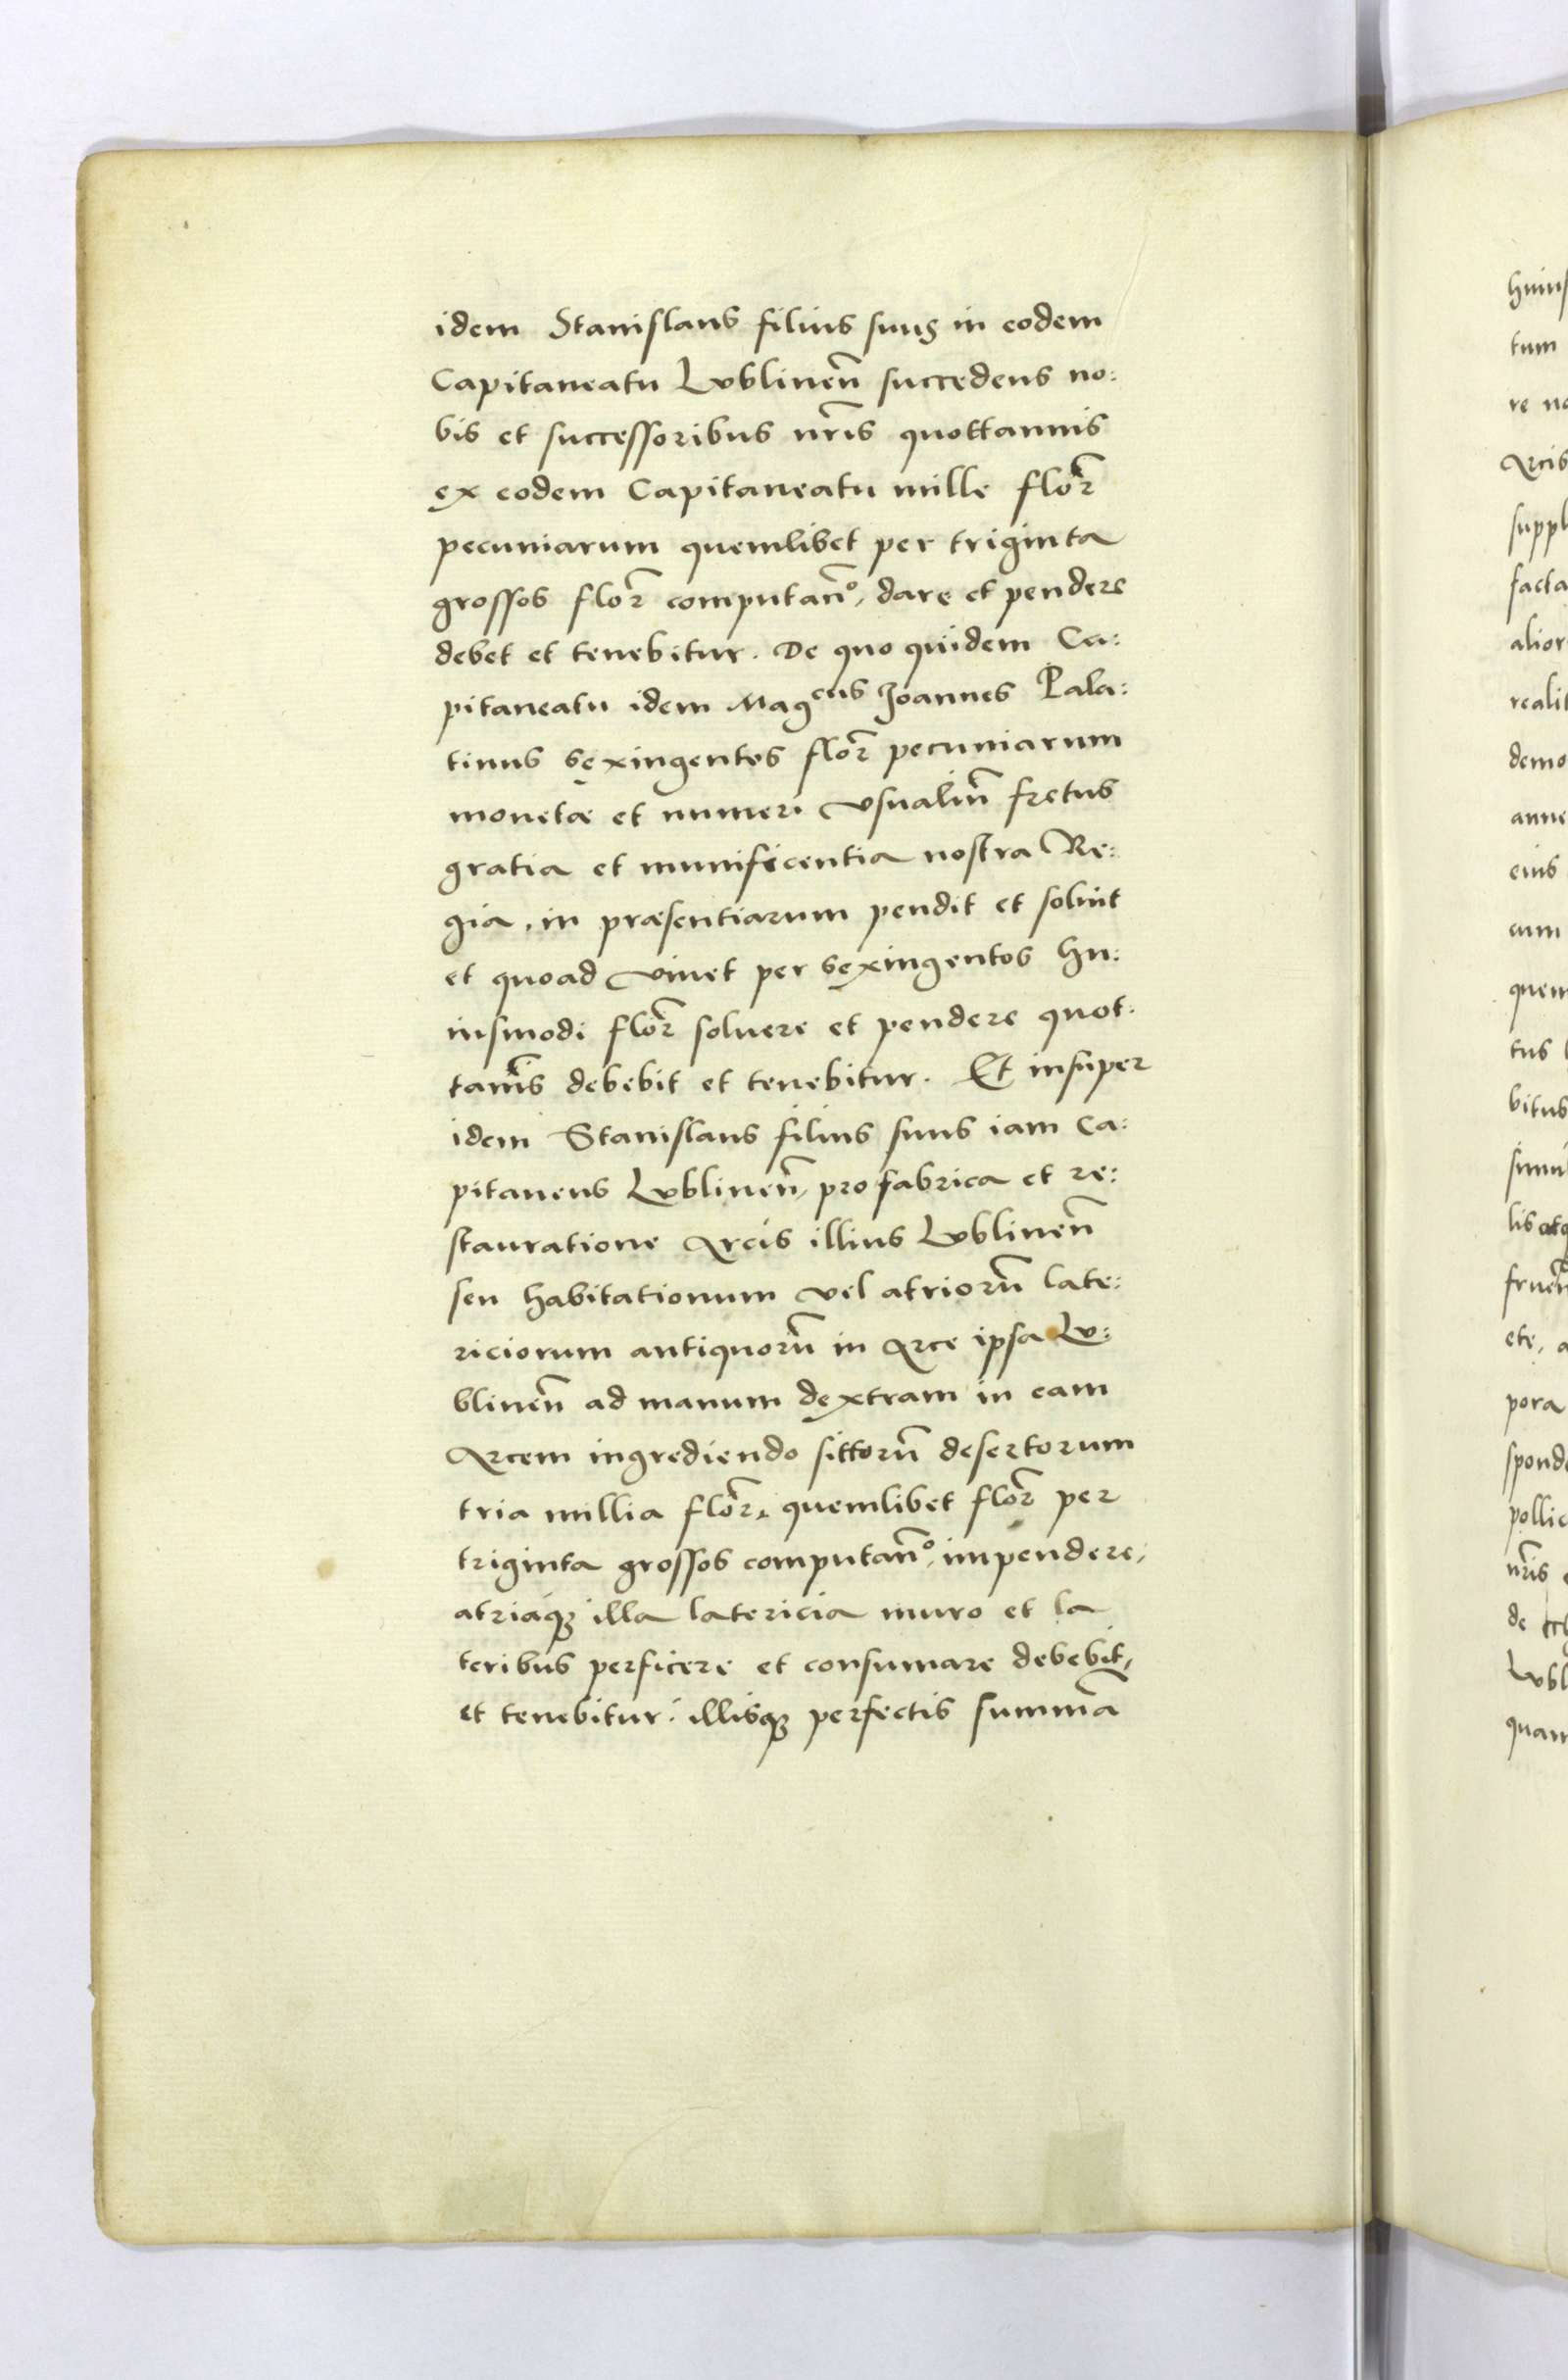 idem Stanislaus filius suus in eodem
Capitaneatu Lublineñ succedens no:
bis et successoribus nr̃is quottannis
ex eodem Capitaneatu mille flor̃
pecuniarum quemlibet per triginta
grossos flor̃ computañº, dare et pendere
debet et tenebitur. De quo quidem Ca:
pitaneatu idem Mag^cus Joannes Pala:
tinus sexingentos flor̃ pecuniarum
monetæ et numeri vsualiũ fretus
gratia et munificentia nostra Re:
gia, in præsentiarum pendit et soluit
et quoad viuet per sexingentos hu:
iusmodi flor̃ soluere et pendere quot:
tañis debebit et tenebitur. Et insuper
idem Stanislaus filius suus iam Ca:
pitaneus Lublineñ, pro fabrica et re:
stauratione Arcis illius Lublineñ
seu habitationum vel atriorũ late:
riciorum antiquorũ in Arce ipsa Lu:
blineñ ad manum dextram in eam
Arcem ingrediendo sittorũ desertorum
tria millia flor̃, quemlibet flor̃ per
triginta grossos computañº, impendere,
atriaq3 illa latericia muro et la
teribus perficere et consumare debebit,
et tenebitur: illisq3 perfectis summã
huius
tum
re no
Arcis
suppl
facta
alior
realit
demo
anne
eius
cum
quem
tus
bitus
simu
lis atq
fruen
ete, a
pora
sponde
pollic
nr̃is
de
Lubl
quam